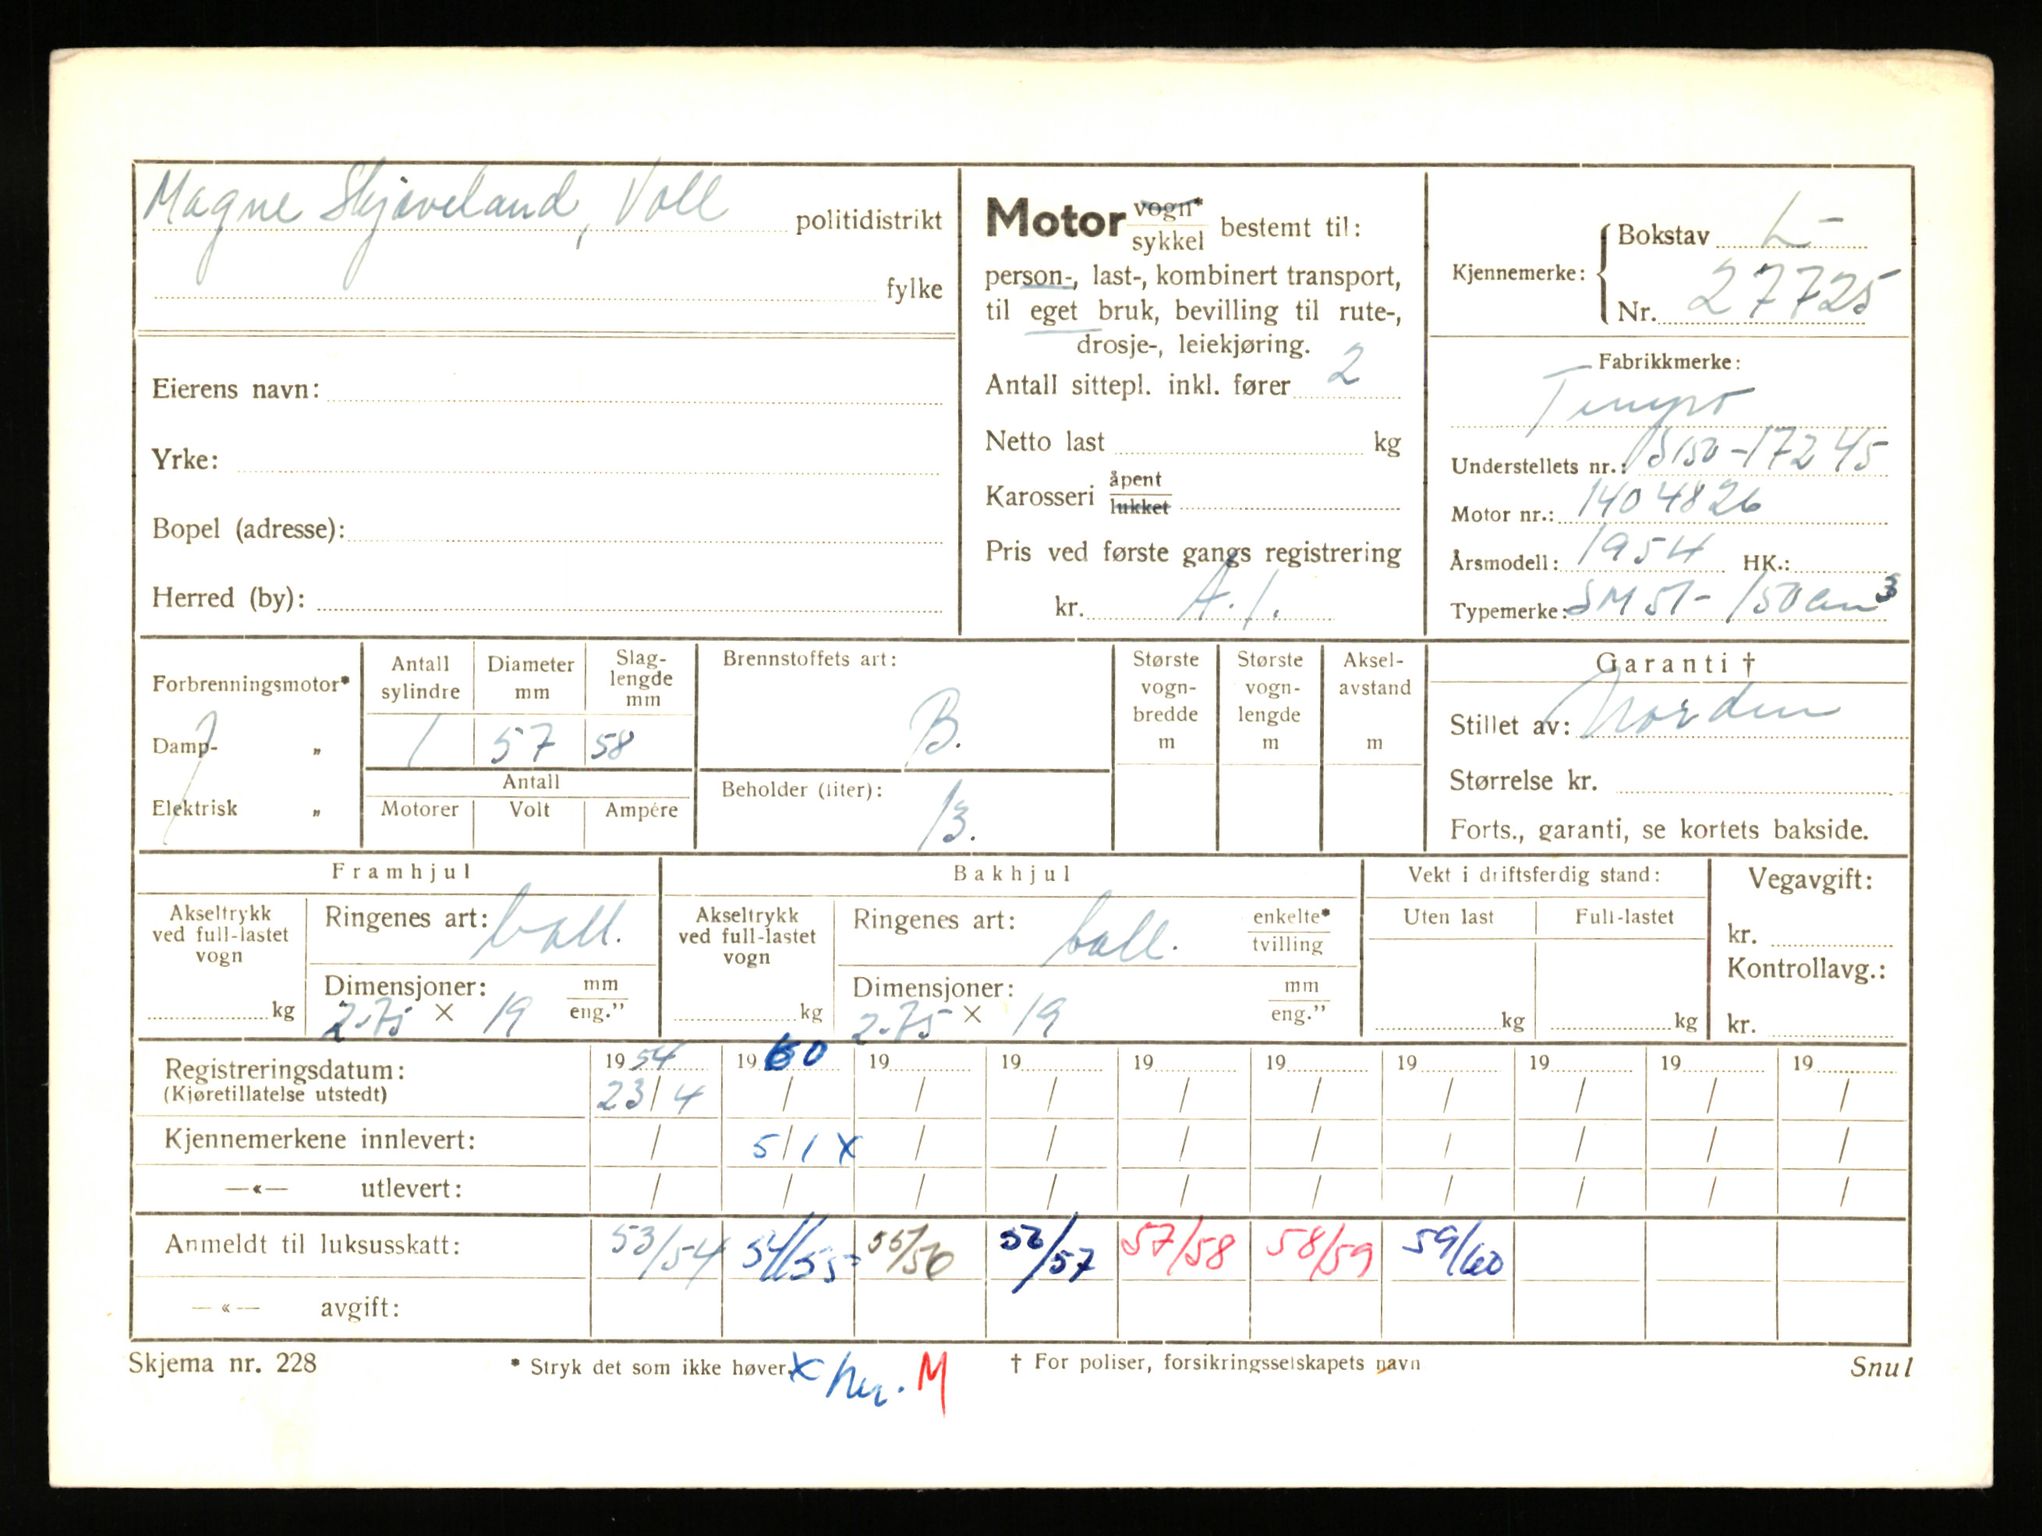 Magne Skjæveland, Voll politidistrikt
fylke
Eierens navn:
Yrke:
Bopel (adresse):
Herred (by):
Motor vogn* sykkel bestemt til:
person-, last-, kombinert transport,
til eget bruk, bevilling til rute-,
drosje-, leiekjøring.
Antall sittepl. inkl. fører 2
Netto last kg
Karosseri åpent lukket
Pris ved første gangs registrering
kr. A.1.
Kjennemerke: Bokstav L-
Nr. 27725
Fabrikkmerke:
Tempo
Understellets nr.: S150-17245
Motor nr.: 1404826
Årsmodell: 1954 HK.:
Typemerke: SM 51- 150 cm3
Forbrenningsmotor*
Damp- „
Elektrisk „
Antall sylindre
Diameter mm
Slaglengde mm
1 57 58
Antall
Motorer Volt Ampére
Brennstoffets art:
B.
Beholder (liter):
13.
Største vognbredde m
Største vognlengde m
Akselavstand m
Garanti †
Stillet av: Norden
Størrelse kr.
Forts., garanti, se kortets bakside.
Framhjul
Akseltrykk ved full-lastet vogn
kg
Ringenes art: ball.
Dimensjoner: mm
2.75 × 19 eng."
Bakhjul
Akseltrykk ved full-lastet vogn
kg
Ringenes art: ball. enkelte* tvilling
Dimensjoner: mm
2.75 × 19 eng."
Vekt i driftsferdig stand:
Uten last Full-lastet
kg kg
Vegavgift:
kr.
Kontrollavg.:
kr.
Registreringsdatum: 1954 1960 19 19 19 19 19 19 19 19
(Kjøretillatelse utstedt) 23/4 / / / / / / / / /
Kjennemerkene innlevert: / 5/1 x / / / / / / / /
—«— utlevert: / / / / / / / / / /
Anmeldt til luksusskatt: 53/54 54/55 55/56 56/57 57/58 58/59 59/60
—«— avgift:
Skjema nr. 228 * Stryk det som ikke høver. x M † For poliser, forsikringsselskapets navn Snul